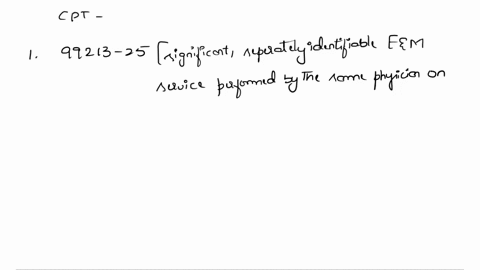 CPT -
1. 99213-25 [significant, seperately identifiable E&M
service performed by the same physician on